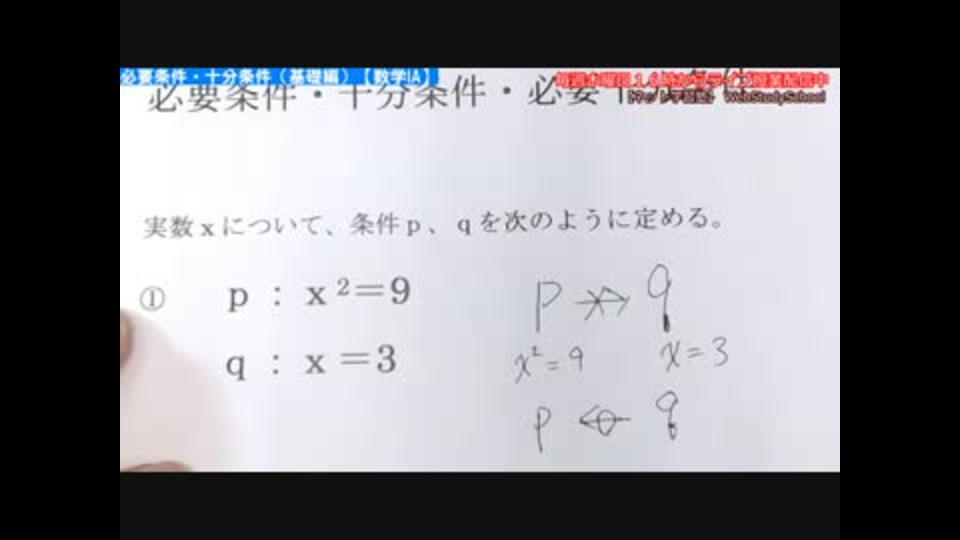 必要条件・十分条件（基礎編）【数学IA】
毎週木曜日16時からライブ授業配信中
WebStudySchool
必要条件・十分条件・必要十分条件
実数xについて、条件p、qを次のように定める。
① p : x²=9
q : x=3
p → q
x²=9 x=3
p ← q